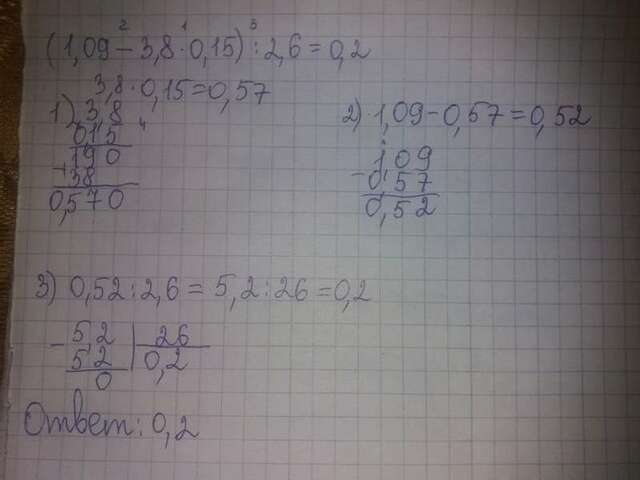 2 1 3
(1,09 - 3,8 · 0,15) : 2,6 = 0,2
3,8 · 0,15 = 0,57
1) 3,8
0,15
190
+ 38
0,570
2) 1,09 - 0,57 = 0,52
1,09
- 0,57
0,52
3) 0,52 : 2,6 = 5,2 : 26 = 0,2
- 5,2 | 26
5 2 | 0,2
0
Ответ: 0,2